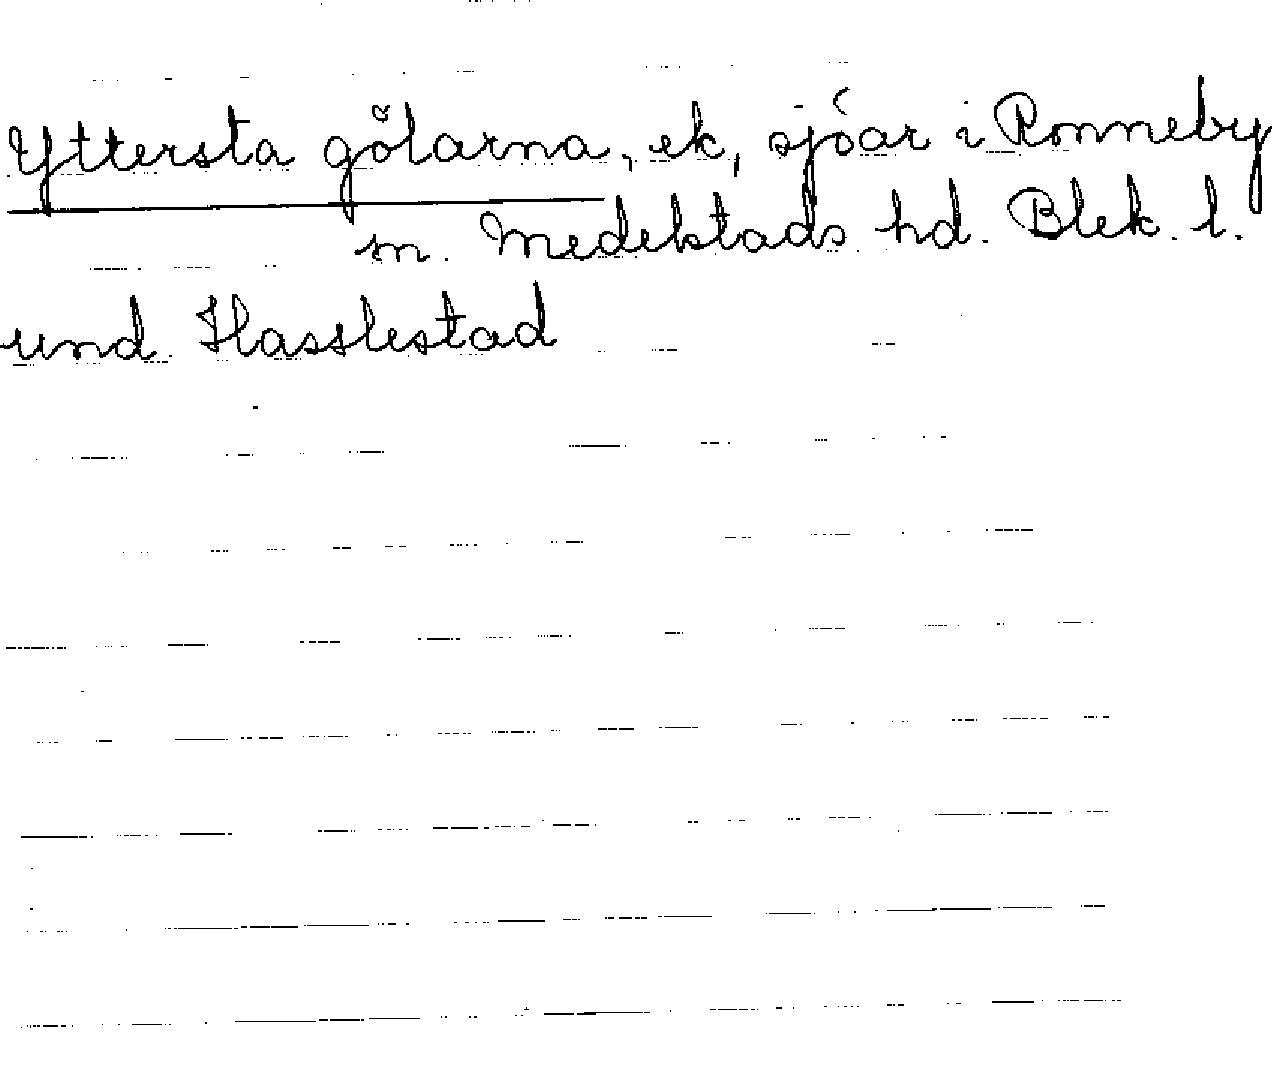 Yttersta gölarna, ek, sjöar i Ronneby
sn. Medelstads hd. Blek. l.
und Hasslestad